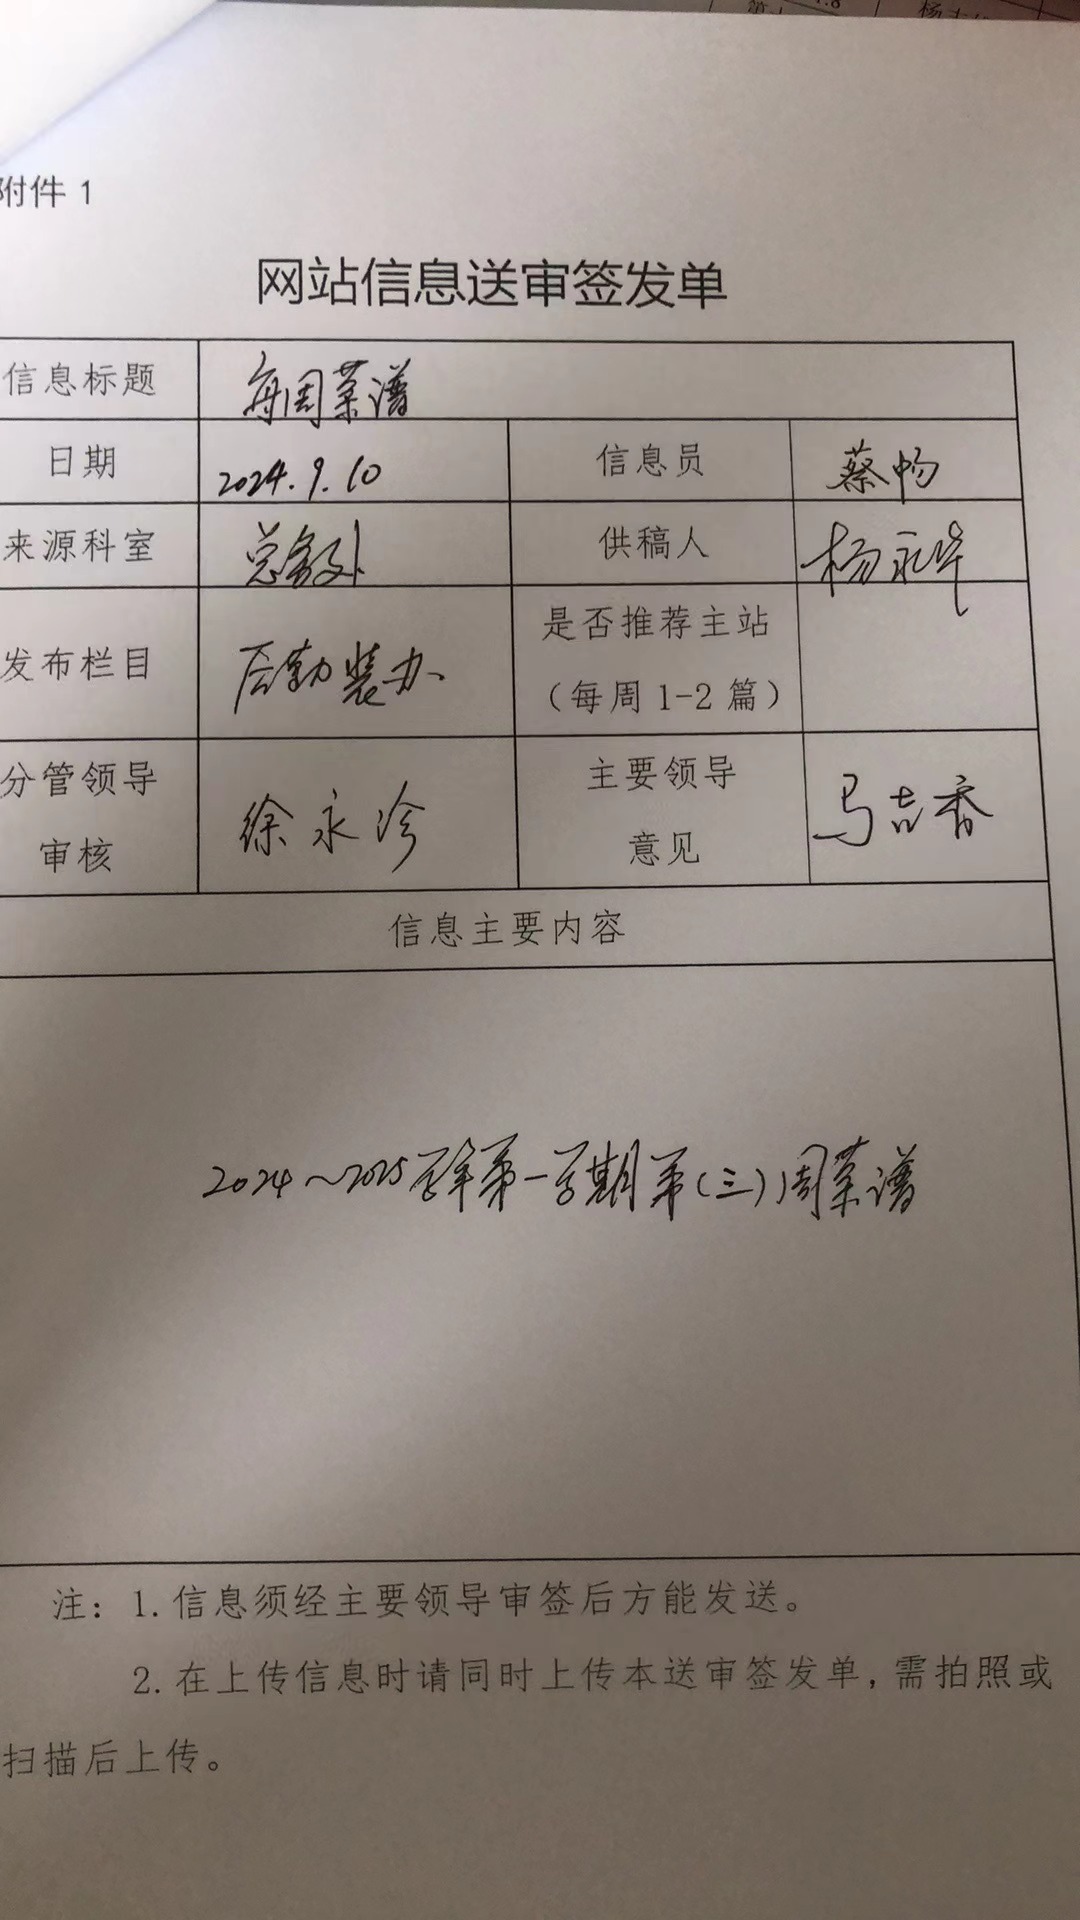 附件 1
网站信息送审签发单
信息标题 每周菜谱
日期 2024.9.10 信息员 蔡畅
来源科室 总务处 供稿人 杨永华
发布栏目 后勤装办 是否推荐主站
（每周 1-2 篇）
分管领导 徐永珍 主要领导 马吉香
审核 意见
信息主要内容
2024～2025学年第一学期第(三)周菜谱
注：1.信息须经主要领导审签后方能发送。
2.在上传信息时请同时上传本送审签发单，需拍照或
扫描后上传。